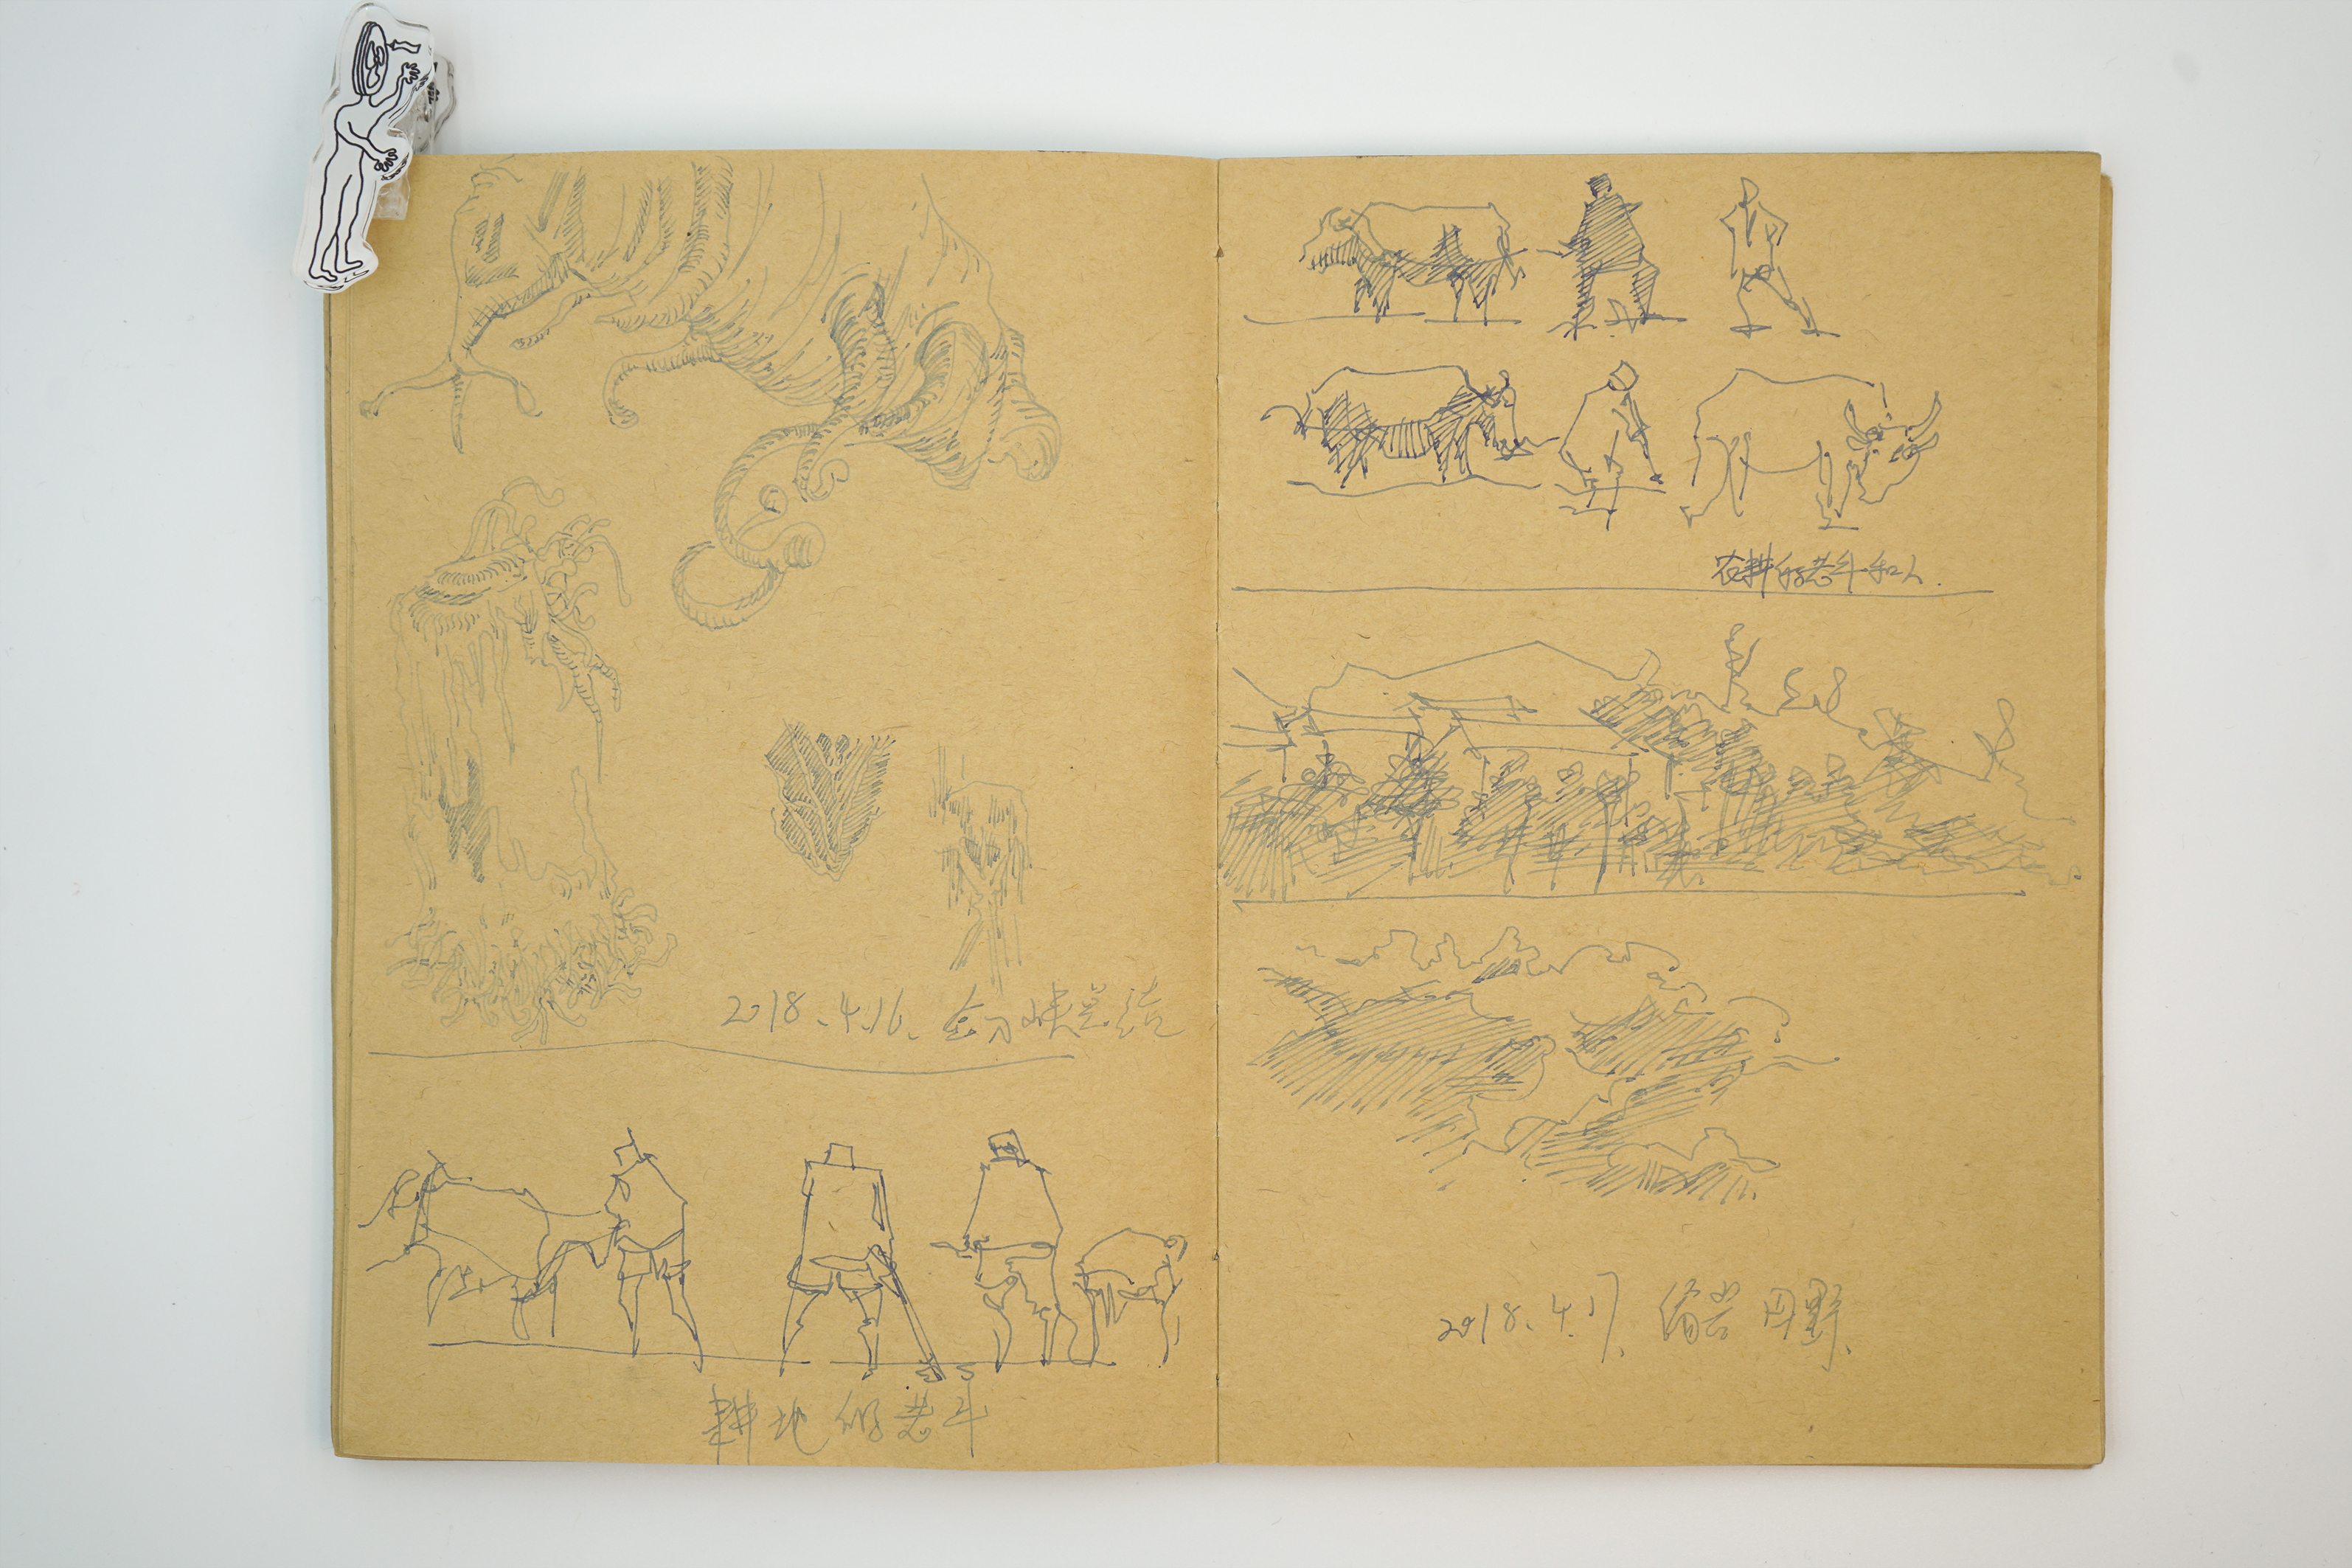 2018.4.16. 剑峡总结
耕地的老牛
农耕的老牛和人.
2018.4.17. 田野.